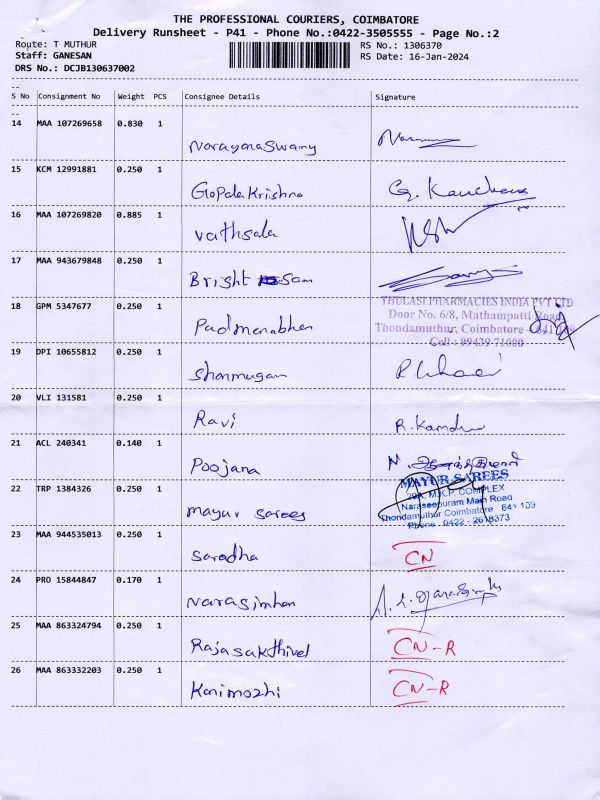 THE PROFESSIONAL COURIERS, COIMBATORE
Delivery Runsheet - P41 - Phone No.:0422-3505555 - Page No.:2
Route: T MUTHUR RS No.: 1306370
Staff: GANESAN RS Date: 16-Jan-2024
DRS No.: DCJB130637002
S No Consignment No Weight PCS Consignee Details Signature
14 MAA 107269658 0.830 1
Narayanaswamy
15 KCM 12991881 0.250 1
Gopalakrishna
16 MAA 107269820 0.885 1
vathsala
17 MAA 943679848 0.250 1
Bright Sam
THULASI PHARMACIES INDIA PVT LTD
18 GPM 5347677 0.250 1 Door No. 6/8, Mathampatti Road
Padmanabhan Thondamuthur, Coimbatore - 641 109
Cell : 99439 71000
19 DPI 10655812 0.250 1
Shanmugam
20 VLI 131581 0.250 1
Ravi
21 ACL 240341 0.140 1
Poojana
MAYUR SAREES
22 TRP 1384326 0.250 1 20A, M.K.P. COMPLEX
Naraseepuram Main Road
mayur sarees Thondamuthur Coimbatore 641 109
Phone : 0422 - 2618373
23 MAA 944535013 0.250 1
saradha CN
24 PRO 15844847 0.170 1
Narasimhan
25 MAA 863324794 0.250 1
Rajasakthivel CN-R
26 MAA 863332203 0.250 1
Kanimozhi CN-R